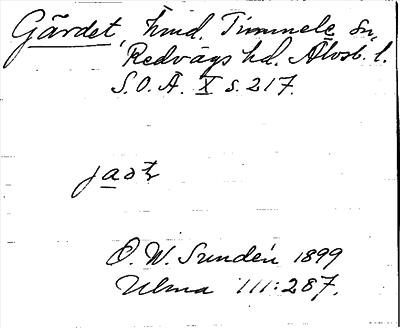 Gärdet, Timmele sn,
Redvägs hd. Älvsb. l.
S.O.Ä. X s. 217.
O. W. Sundén 1899
Ulma 111:287.